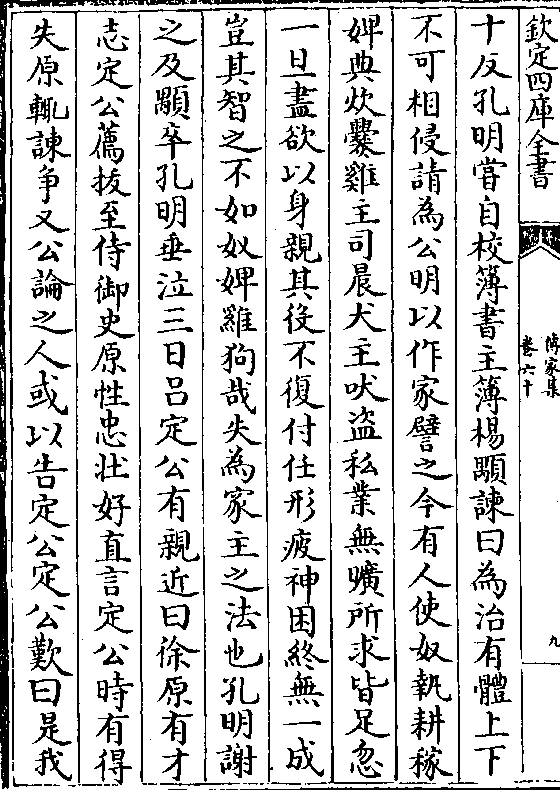 欽定四庫全書
傳家集
卷六十
九
十反孔明嘗自校簿書主簿楊顒諫曰為治有體上下
不可相侵請為公明以作家譬之今有人使奴執耕稼
婢典炊爨雞主司晨犬主吠盜私業無曠所求皆足忽
一旦盡欲以身親其役不復付任形疲神困終無一成
豈其智之不如奴婢雞狗哉失為家主之法也孔明謝
之及顒卒孔明垂泣三日吕定公有親近曰徐原有才
志定公薦拔至侍御史原性忠壯好直言定公時有得
失原輒諫争又公論之人或以告定公定公歎曰是我